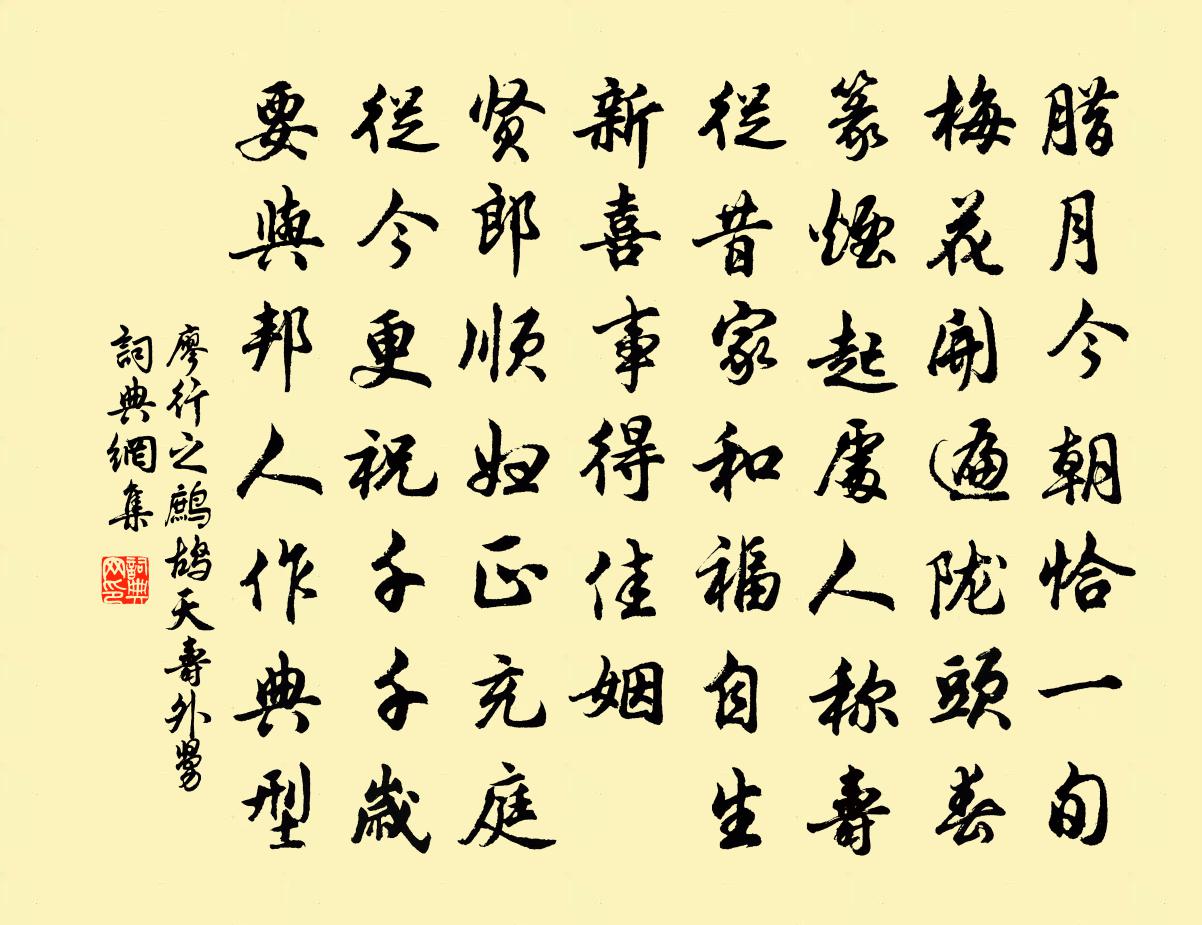 腊月今朝恰一旬
梅花開遍陇頭春
篆煙起處人称壽
從昔家和福自生
新喜事得佳姻
贤郎順妇正充庭
從今更祝千千歳
要與邦人作典型
廖行之鷓鴣天壽外舅
詞典網集
詞典网印